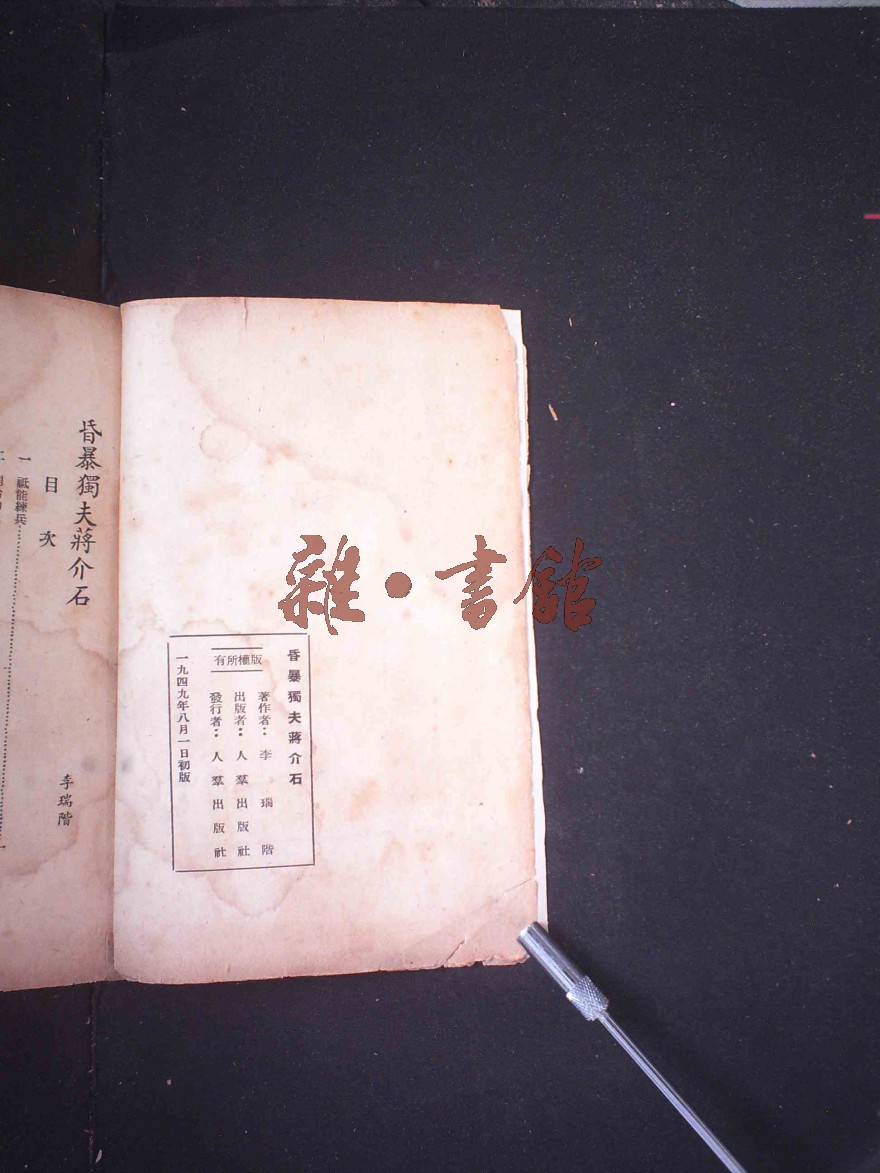 昏暴獨夫蔣介石
著作者：李瑞階
出版者：人羣出版社
發行者：人羣出版社
版權所有
一九四九年八月一日初版
昏暴獨夫蔣介石
李瑞階
目次
一 祗能練兵
雜·書館